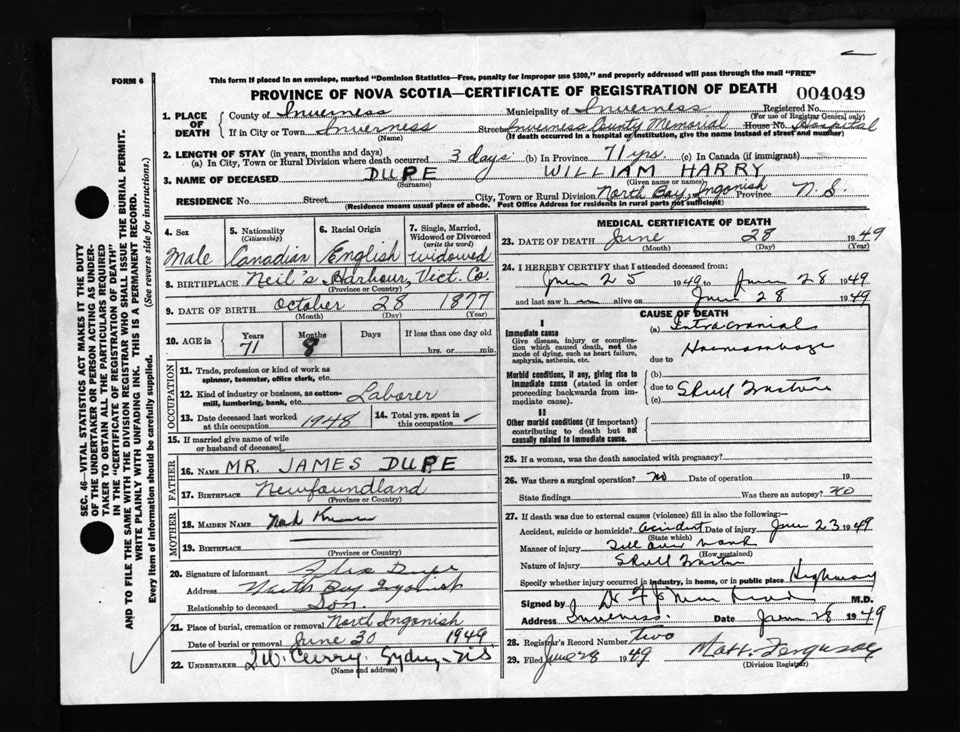 FORM 6
This form if placed in an envelope, marked "Dominion Statistics—Free, penalty for improper use $300," and properly addressed will pass through the mail "FREE"
PROVINCE OF NOVA SCOTIA—CERTIFICATE OF REGISTRATION OF DEATH
004049
1. PLACE OF DEATH
County of Inverness Municipality of Inverness Registered No.
(For use of Registrar General only)
If in City or Town Inverness Street Inverness County Memorial House No. Hospital
(Name) (If death occurred in a hospital or institution, give the name instead of street and number)
2. LENGTH OF STAY (in years, months and days)
(a) In City, Town or Rural Division where death occurred 3 days. (b) In Province 71 yrs. (c) In Canada (if immigrant)
3. NAME OF DECEASED DUPE WILLIAM HARRY
(Surname) (Given name or names)
RESIDENCE No. Street City, Town or Rural Division North Bay, Ingonish Province N.S.
(Residence means usual place of abode. Post Office Address for residents in rural parts not sufficient)
4. Sex
Male
5. Nationality
(Citizenship)
Canadian
6. Racial Origin
English
7. Single, Married, Widowed or Divorced
(write the word)
Widowed
8. BIRTHPLACE Neil's Harbour, Vict. Co.
(Province or Country)
9. DATE OF BIRTH October 28 1877
(Month) (Day) (Year)
10. AGE in
Years Months Days If less than one day old
71 8 hrs. or min.
OCCUPATION
11. Trade, profession or kind of work as
spinner, teamster, office clerk, etc.
12. Kind of industry or business, as cotton-
mill, lumbering, bank, etc. Laborer
13. Date deceased last worked
at this occupation 1948
14. Total yrs. spent in
this occupation
15. If married give name of wife
or husband of deceased
FATHER
16. NAME MR. JAMES DUPE
17. BIRTHPLACE Newfoundland
(Province or Country)
MOTHER
18. MAIDEN NAME
19. BIRTHPLACE
(Province or Country)
20. Signature of informant Dupe
Address North Bay Ingonish
Relationship to deceased Son.
21. Place of burial, cremation or removal North Ingonish
Date of burial or removal June 30 1949
22. UNDERTAKER Curry. Sydney, N.S.
(Name and address)
MEDICAL CERTIFICATE OF DEATH
23. DATE OF DEATH June 28 1949
(Month) (Day) (Year)
24. I HEREBY CERTIFY that I attended deceased from:
June 25 1949 to June 28 1949
and last saw h im alive on June 28 1949
CAUSE OF DEATH
I
Immediate cause
Give disease, injury or complication which caused death, not the mode of dying, such as heart failure, asphyxia, asthenia, etc.
(a) Intracranial
Haemorrhage
due to
Morbid conditions, if any, giving rise to immediate cause (stated in order proceeding backwards from immediate cause).
(b)
due to Skull Fracture
(c)
II
Other morbid conditions (if important) contributing to death but not causally related to immediate cause.
25. If a woman, was the death associated with pregnancy?
26. Was there a surgical operation? No Date of operation 19
State findings Was there an autopsy? No
27. If death was due to external causes (violence) fill in also the following:—
Accident, suicide or homicide? Accident Date of injury June 23 1949
(State which)
Manner of injury Fell over bank
(How sustained)
Nature of injury Skull Fracture
Specify whether injury occurred in industry, in home, or in public place Highway
Signed by M.D.
Address Inverness. Date June 28 1949
28. Registrar's Record Number two
29. Filed June 28 1949 Ferguson
(Division Registrar)
SEC. 46—VITAL STATISTICS ACT MAKES IT THE DUTY
OF THE UNDERTAKER OR PERSON ACTING AS UNDER-
TAKER TO OBTAIN ALL THE PARTICULARS REQUIRED
IN THE "CERTIFICATE OF REGISTRATION OF DEATH"
AND TO FILE THE SAME WITH THE DIVISION REGISTRAR WHO SHALL ISSUE THE BURIAL PERMIT.
WRITE PLAINLY WITH UNFADING INK. THIS IS A PERMANENT RECORD.
Every item of information should be carefully supplied. (See reverse side for instructions.)